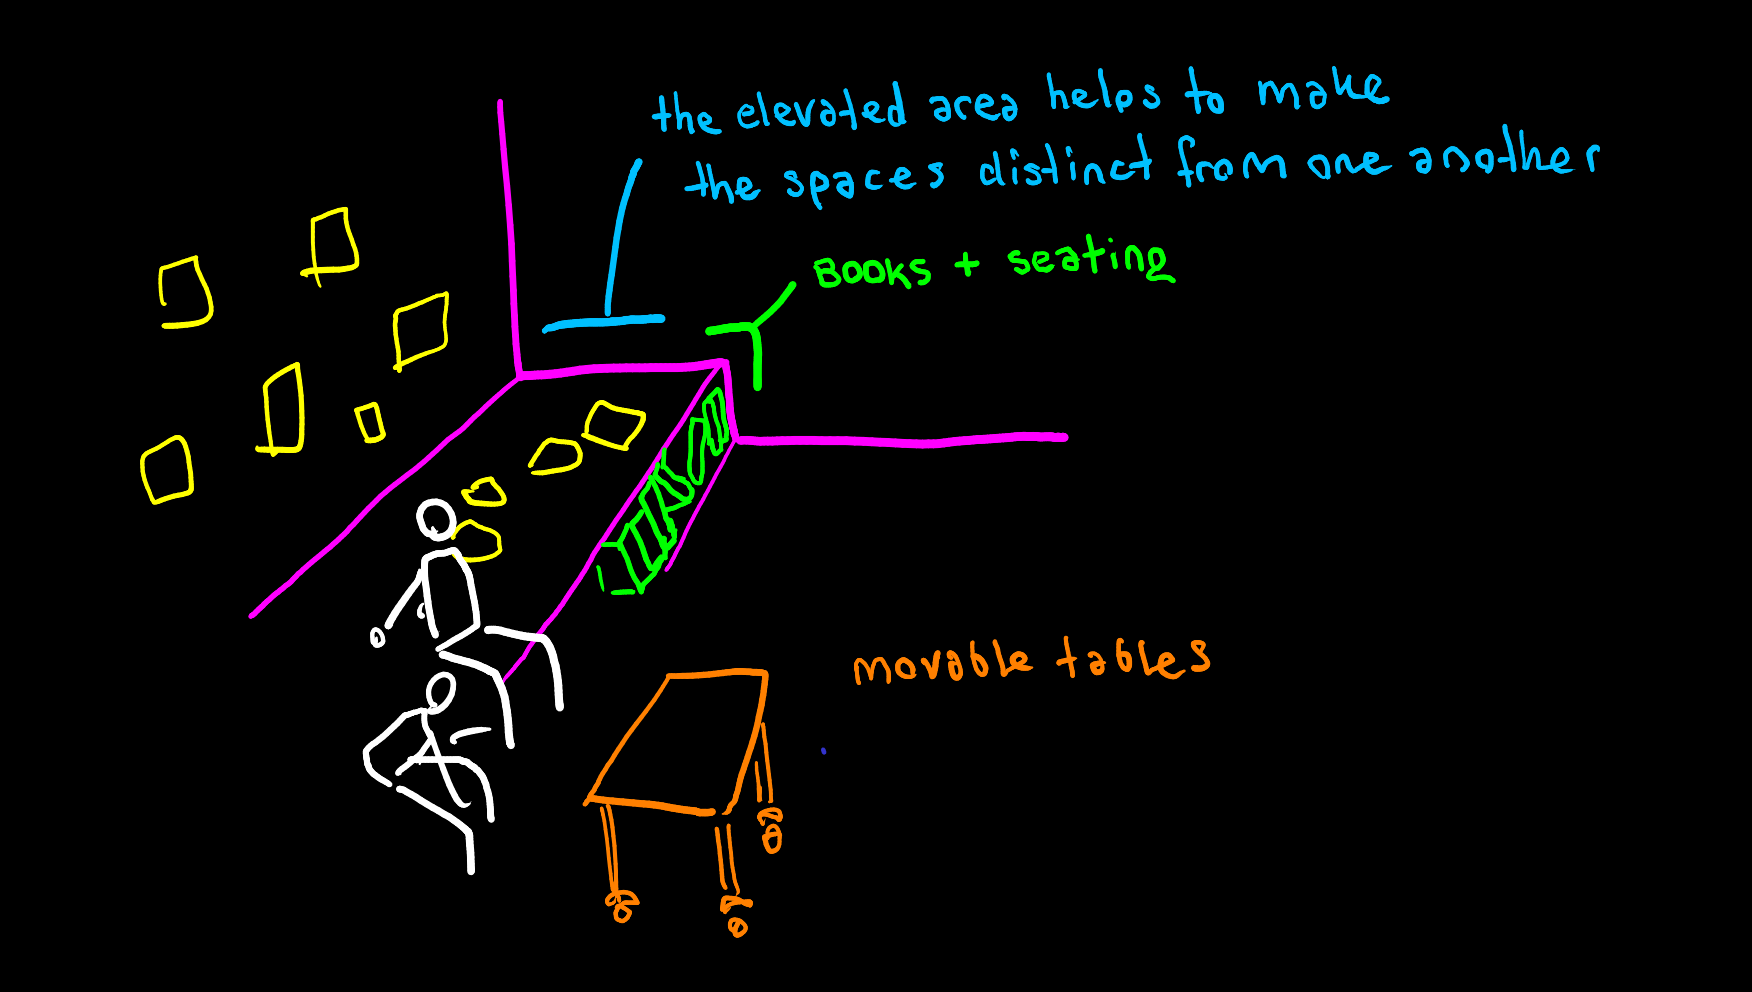 the elevated area helps to make
the spaces distinct from one another
BOOKS + seating
movable tables